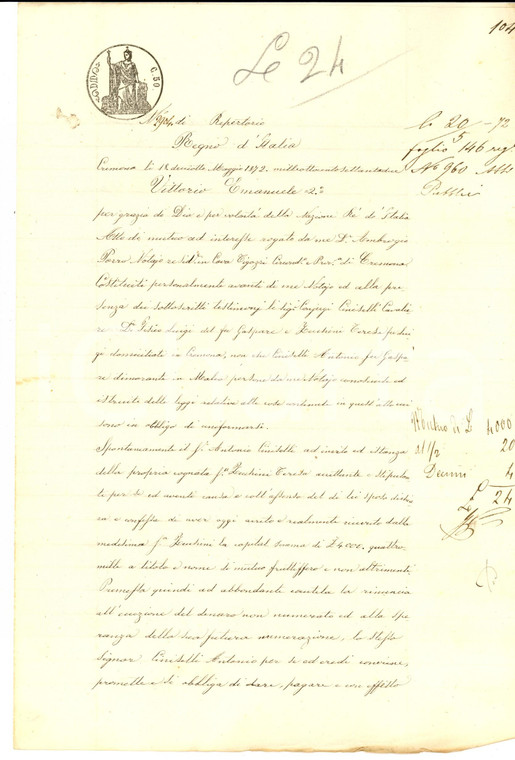 104
Le 24
C. 50
N° di Repertorio
Regno d'Italia
li 20 - 72
foglio 146 reg
N° 960 Atti
Pubblici
Cremona li Maggio 1872. milleottocentosettantadue
Vittorio Emanuele 2do
per grazia di Dio e per volontà della Nazione Re d'Italia
Atto di mutuo ad interesse rogato da me Dr. Ambrogio
Porro Notajo resid. in Cava Tigozzi Circond. e Prov. di Cremona
Costituiti personalmente avanti di me Notajo ed alla pre
senza dei sottoscritti testimonj li Sigi. Coniugi Ciniselli Cavalie
re Dr. Luigi del fu Gaspare e Zucchini Teresa fu Lui
gi domiciliati in Cremona, non che Ciniselli Antonio fu Gaspa
re dimorante in persone da me Notajo conosciute ed
istruite delle leggi relative alle cose contenute in quest'atto cui
sono in obbligo di uniformarsi.
Spontaneamente il Sr. Antonio Ciniselli ad invito ed istanza
della propria cognata Sra. Zucchini Teresa accettante e stipulan
te per sé ed aventi causa e coll'assenso del di lei sposo dichia
ra e confessa di aver oggi avuto e realmente ricevuto dalla
medesima Sra. Zucchini la capital somma di £ 4000, quattro
mille a titolo e nome di mutuo fruttifero e non altrimenti
Premessa quindi ad abbondante cautela la rinuncia
all'eccezione del denaro non numerato ed alla spe
ranza della sua futura numerazione, lo stesso
Signor Ciniselli Antonio per sé ed eredi conviene,
promette e si obbliga di dare, pagare e con effetto
Mutuo di £ 4000
al 1/2 20
Decimi 4
£ 24